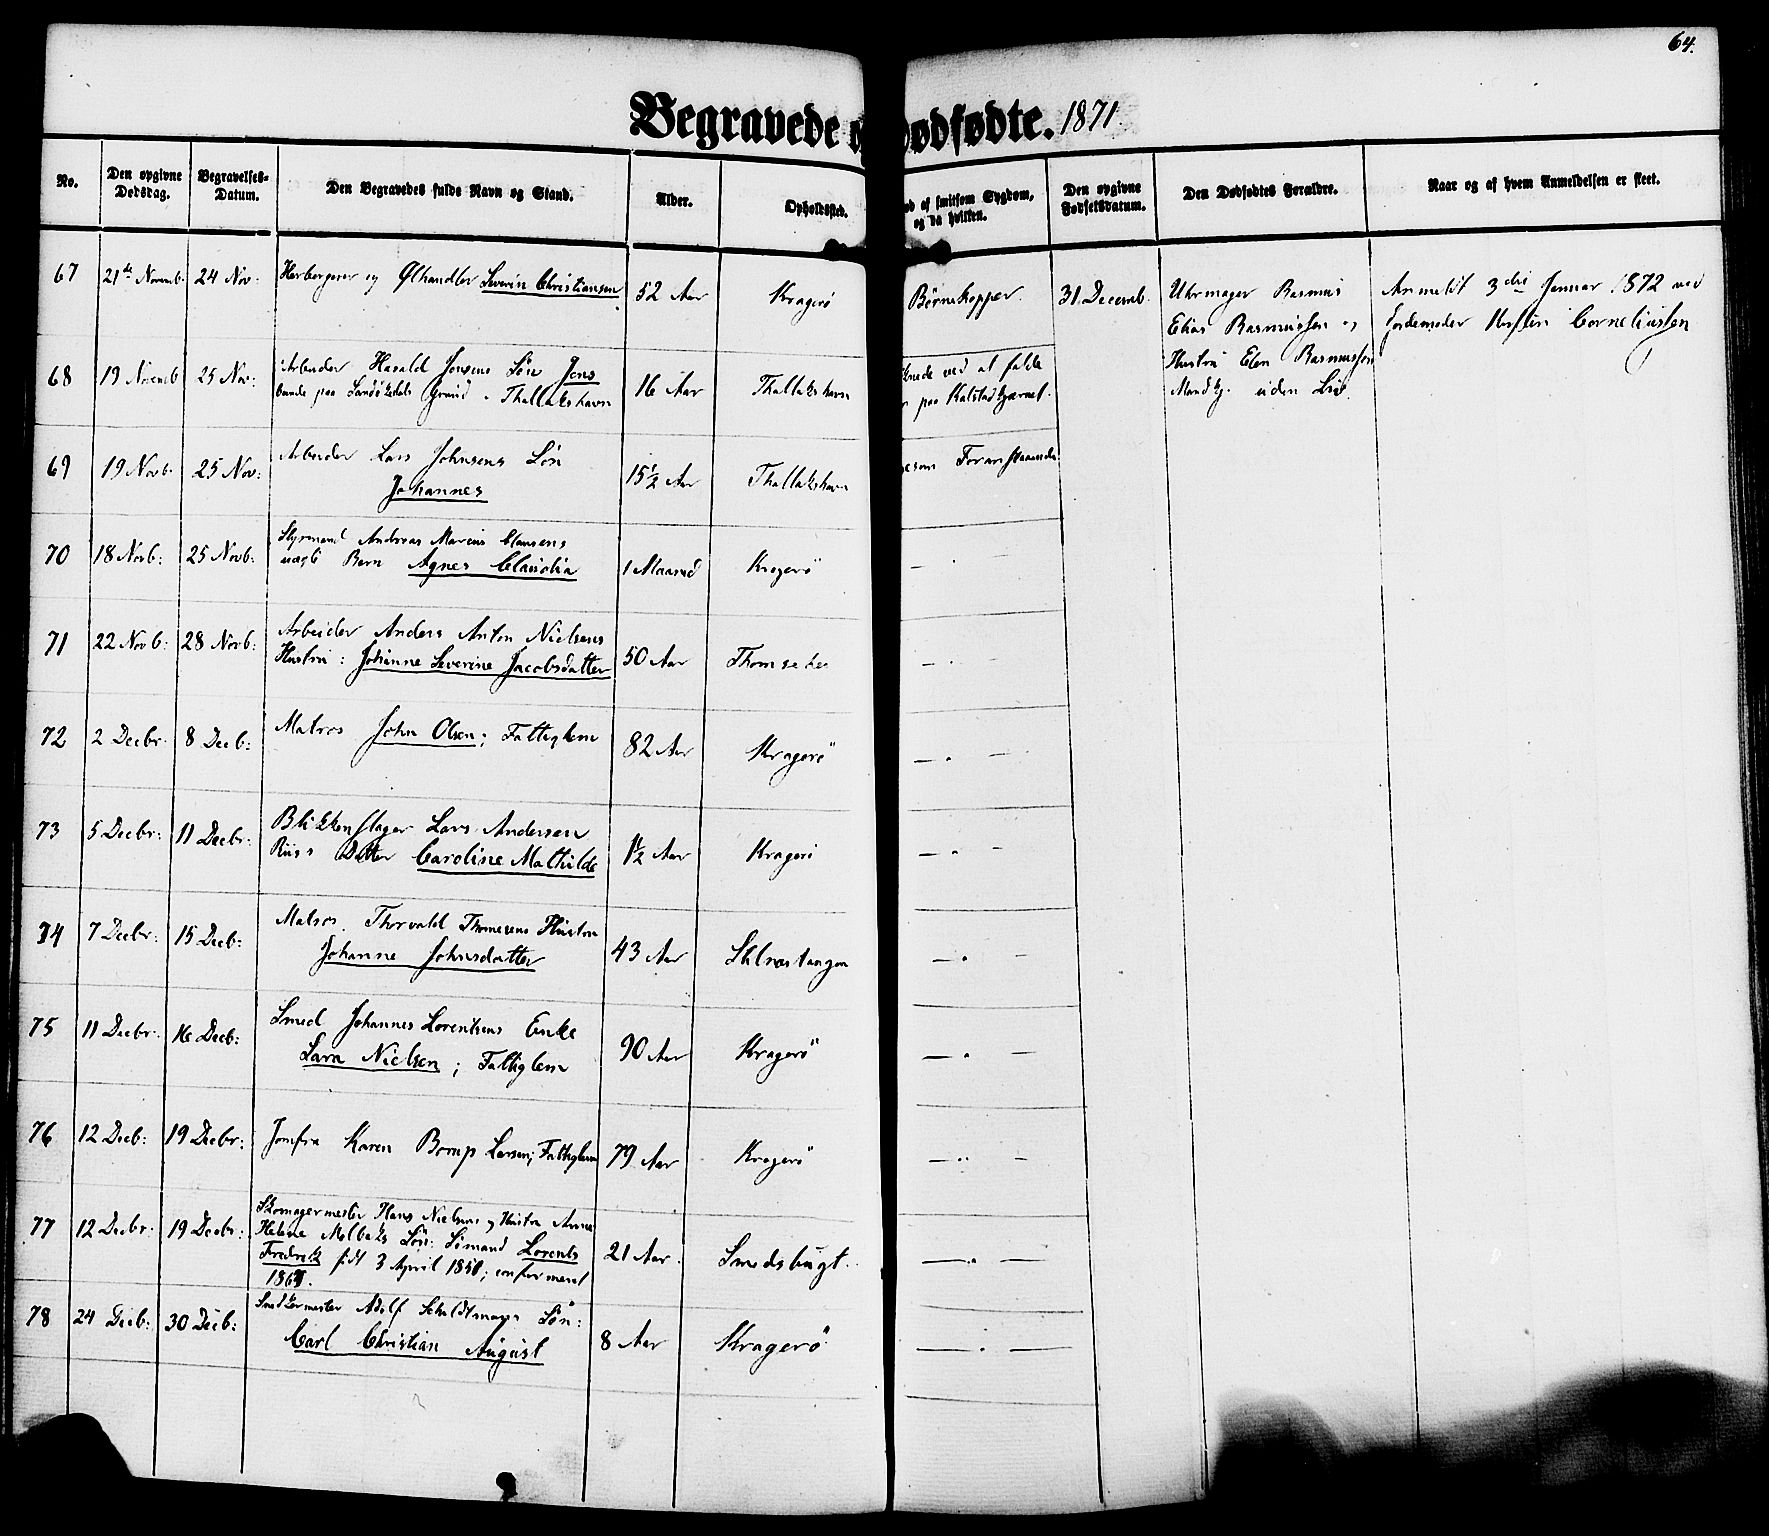 64.
Begravede o
ødfødte. 1871.
No.
Den opgivne Dødsdag.
Begravelses-Datum.
Den Begravedes fulde Navn og Stand.
Alder.
Opholdssted.
af smitsom Sygdom, og da hvilken.
Den opgivne Fødselsdatum.
Den Dødfødtes Forældre.
Naar og af hvem Anmeldelsen er skeet.
67 21de Novemb. 24 Nov. Herbergerer og Ølhandler Severin Christiansen 52 Aar Kragerö Børnekopper. 31. Decemb. Uhrmager Rasmus Anmeldt 3die Januar 1872 ved
Elias Rasmussen og Jordemoder Corneliussen
Hustru Elen Rasmussen
Mandkj. uden Liv.
68 19 Novemb 25 Nov: Arbeider Harald Jensens Sön Jens 16 Aar Thallakshavn ved at falde
paa Grund. Thallakshavn paa Kalstadkjærnet.
69 19 Novb. 25 Nov: Arbeider Lars Johnsens Sön 15½ Aar Thallakshavn som Foranstaaende
Johannes
70 18 Novb: 25 Novb: Styrmand Andreas Marius Clausens 1 Maaned Kragerö — . —
uægte Barn Agnes Claudia
71 22 Novb: 28 Novb: Arbeider Anders Anton Nielsens 50 Aar — . —
Hustru: Johanne Severine Jacobsdatter
72 2 Decbr. 8 Decb: Matros John Olsen; Fattiglem 82 Aar Kragerö — . —
73 5 Decbr: 11 Decbr: Blikkenslager Lars Andersen 1½ Aar Kragerö — . —
Riis's Datter Caroline Mathilde
74 7 Decbr: 15 Decb: Matros Thorvald Thomesens Hustru 43 Aar — . —
Johanne Johnsdatter
75 11 Decbr. 16 Decb: Smed Johannes Lorentsens Enke 90 Aar Kragerö — . —
Lara Nielsen; Fattiglem
76 12 Decb: 19 Decbr: Jomfru Karen Bomp Larsen; Fattiglem 79 Aar Kragerö — . —
77 12 Decbr. 19 Decbr: Skomagermester Hans Nielsens og Hustru Anne 21 Aar. Smedsbugt. — . —
Helene Molbeks Sön: Sömand Lorents
Fredrik född 3 April 1850; confirmeret
186
78 24 Decb: 30 Decb: Snedkermester Adolf Scholdtmayers Sön: 8 Aar Kragerö — . —
Carl Christian August